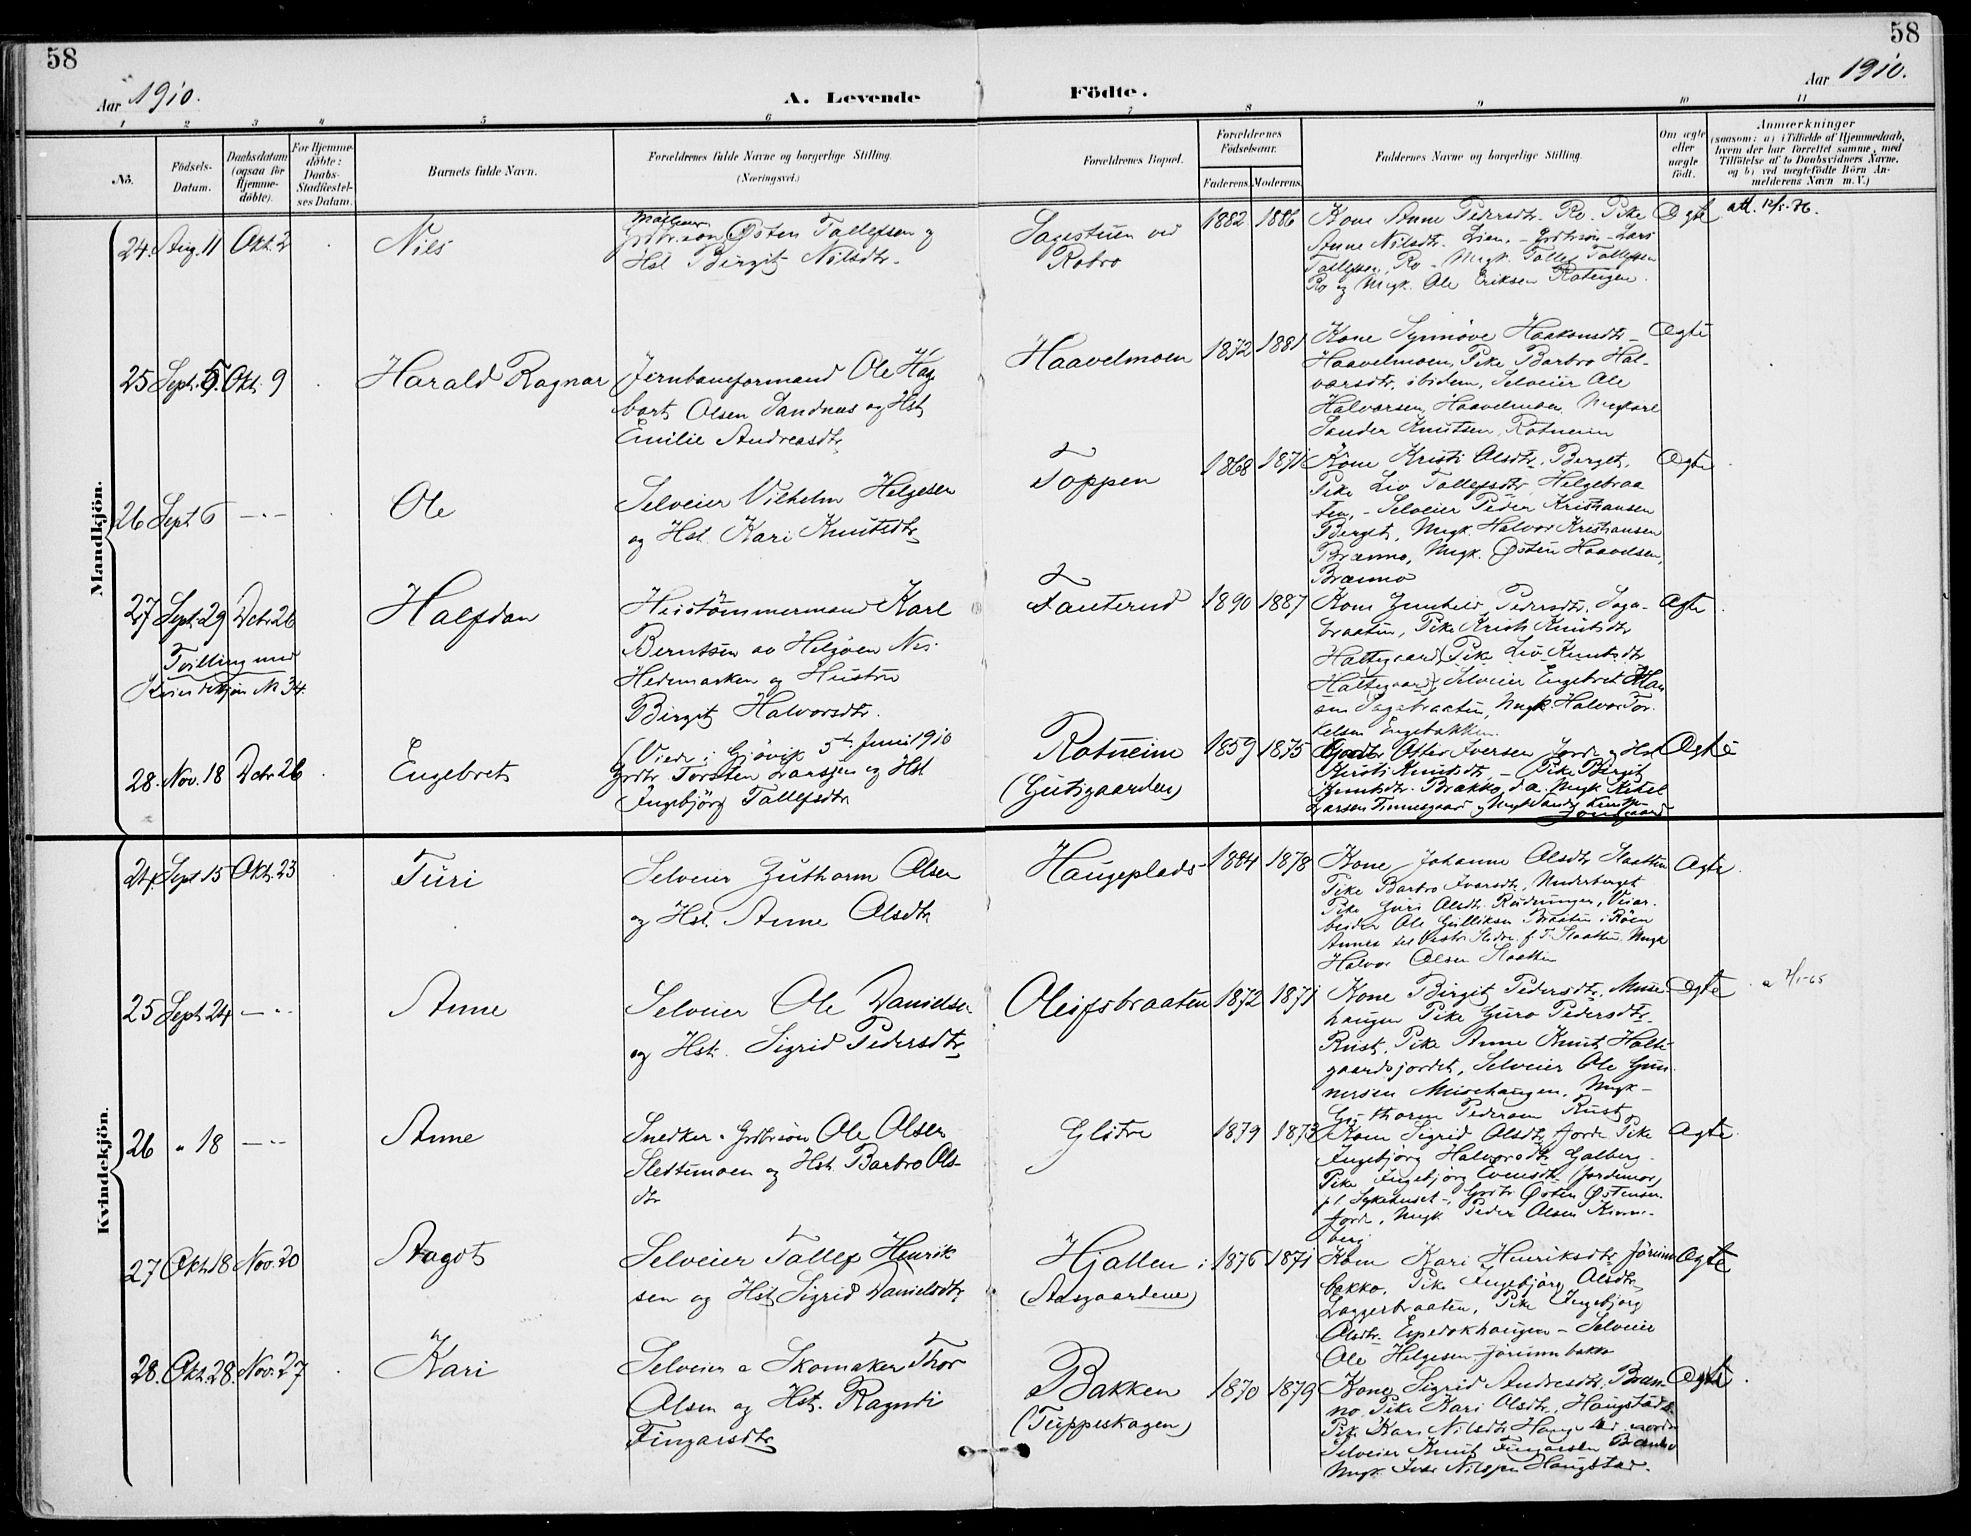 58
58
Aar 1910.
A. Levende
Födte.
Aar 1910.
1 2 3 4 5 6 7 8 9 10 11
No.
Födsels-Datum.
Daabsdatum (ogsaa for Hjemme-döbte).
For Hjemme-döbte: Daabs-Stadfæstel-ses Datum.
Barnets fulde Navn.
Forældrenes fulde Navne og borgerlige Stilling.
(Næringsvei.)
Forældrenes Bopæl.
Forældrenes Födselsaar.
Faderens. Moderens.
Faddernes Navne og borgerlige Stilling.
Om ægte eller uægte födt.
Anmærkninger
(saasom: a) i Tilfælde af Hjemmedaab, hvem der har forrettet samme, med Tilföielse af to Daabsvidners Navne, og b) ved uægtefödte Börn An-melderens Navn m. V.)
Mandkjön.
24. Aug. 11 Okt. 2 Nils
Grdbr.søn Østen Tollefsen og
Hst Birgit Nilsdtr.
Sagestuen ved
Robro
1882 1886
Kone Anne Pedersdtr. Ro. Pike
Anne Nilsdtr. Lien, - Grdbrsøn - Lars
Tollefsen, Ro - Ungk. Tollef Tollefsen
Ro og Ungk. Ole Eriksen Roteigen.
Ægte
25 Sept. 5. Okt. 9 Harald Ragnar
Jernbaneformand Ole Hag-
bart Olsen Sandnes og Hst
Emilie Andreasdtr
Haavelmoen
1872 1881
Kone Synnøve Haakonsdtr -
Haavelmoen, Pike Barbro Hal-
vorsdtr. ibidem, Selveier Ole
Halvorsen, Haavelmoen, Ungkarl
Sander Knutsen, Rotneim
Ægte
26 Sept 6 - " - Ole
Selveier Vilhelm Helgesen
og Hst. Kari Knutsdtr
Toppen
1868 1871
Kone Kristi Olsdtr. Berget,
Pike Liv Tollefsdtr, Helgebraa
ten, - Selveier Peder Kristiansen
Berget, Ungk. Halvor Kristiansen
Brenno, Ungk. Østen Haavelsen,
Brenno
Ægte
27 Sept. 29 Dcbr 26 Halfdan
Tvilling med
Kvindekjøn N. 34.
Hustømmermand Karl
Berntsen av Helgøen Nes.
Hedemarken og Hustru
Birgit Halvorsdtr.
(Viede i Gjøvik 5te Juni 1910
Fauterud
1890 1887
Kone Gunhild Pedersdtr, Saga-
braaten, Pike Kristi Knutsdtr
Haltegaard, Pike Liv Knutsdtr
Haltegaard, Selveier Engebret Han
sen Sagabraaten, Ungk. Halvor Tor-
kelsen Engebakken.
Ægte
28. Nov. 18 Dcbr 26 Engebret
Grdbr Torsten Larssen og Hst
Ingebjørg Tollefsdtr
Rotneim
(Gutsgaarden)
1859 1875
Grdbr Iversen Jorde og Hst
Kristi Knutsdtr, - Pike Birgit
Knutsdtr. Brakko, d.a. Ungk Ketil
Larsen
Ægte
Kvindekjön.
24 Sept 15 Okt. 23 Turi
Selveier Guthorm Olsen
og Hst. Anne Olsdtr
Haugeplads
1884 1878
Kone Johanne Olsdtr Slaatten
Pike Barbro Ivarsdtr, Underberget
Pike Guri Olsdtr. Rudningen, Veiar-
beider Ole Gulliksen Braaten i Røen
Annex til Vestr Slidre f. T. Slaatten, Ungk
Halvor Olsen Slaatten
Ægte
25 Sept. 24 - " - Anne
Selveier Ole Danielsen
og Hst. Sigrid Pedersdtr
Oleifsbraaten
1872 1871
Kone Birgit Pedersdtr. Muse-
haugen Pike Guro Pedersdtr -
Rust, Pike Anne Knuts Halte
gaardsjordet, Selveier Ole Gun-
nersen Musehaugen, Ungk -
Guthorm Pedersen Rust
Ægte
26 " 18 - " - Anne
Snedker - Grdbrsøn Ole Olsen
Slettemoen og Hst Barbro Ols-
dtr
Glitre
1879 1873
Kone Sigrid Olsdtr Jorde Pike
Ingebjørg Halvorsdtr Golberg -
Pike Ingebjørg Evensdtr (Jordmor)
p.t. Sykehuset -, Grdbr Østen Østensen
Jorde, Ungk Peder Olsen Kinne-
berg
Ægte
27 Okt 18 Nov. 20 Aagot
Selveier Tollef Henrik
sen og Hst Sigrid Danielsdtr
Hjallen i
(Aasgaardene)
1876 1871
Kone Kari Henriksdtr Jørun
bakko, Pike Ingebjørg Olsdtr
Laggerbraaten, Pike Ingebjørg
Olsdtr. Espedokhaugen - Selveier
Ole Helgesen Jørunnbakko
Ægte
28. Okt. 28. Nov. 27 Kari
Selveier a Skomaker Thor
Olsen og Hst. Ragndi
Fingarsdtr
Bakken
(Tuppeskogen)
1870 1879
Kone Sigrid Andresdtr. Bren
no, Pike Kari Olsdtr, Haugstad
Pik Kari Nilsdtr Haugstad nordre
Selveier Knut Fingarsen Brenno
Ungk. Ivar Nilssen Haugstad.
Ægte